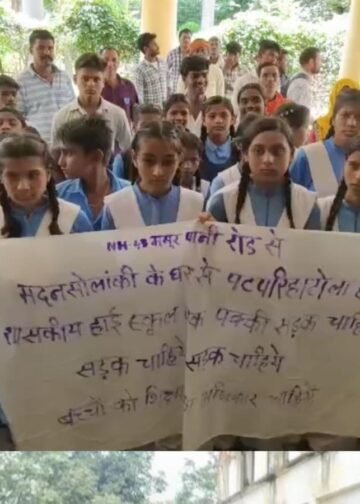 NH-43 मसूर पानी रोड से
मदनसोलांकी के घर से पटपरिहाटोला
शासकीय हाई स्कूल तक पक्की सड़क चाहि
सड़क चाहिये सड़क चाहिये
बच्चों को शिक्षा अधिकार चाहिये